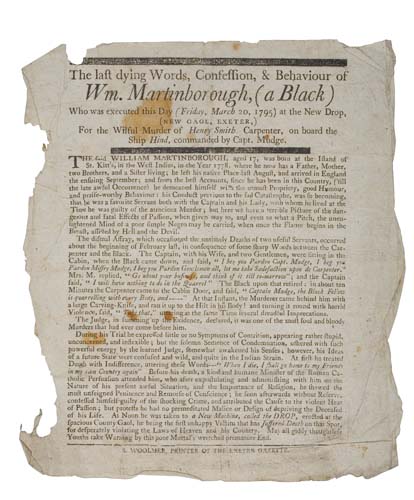 The laſt dying Words, Confeſſion, & Behaviour of
Wm. Martinborough, (a Black)
Who was executed this Day (Friday, March 20, 1795) at the New Drop,
(NEW GAOL, EXETER,)
For the Wilful Murder of Henry Smith Carpenter, on board the
Ship Hind, commanded by Capt. Mudge.
THE ſaid WILLIAM MARTINBOROUGH, aged 17, was born at the Iſland of
St. Kitt's, in the Weſt Indies, in the Year 1778, where he now has a Father, Mother,
two Brothers, and a Siſter living; he left his native Place laſt Auguſt, and arrived in England
the enſuing September; and from the beſt Accounts, ſince he has been in this Country, (till
the late awful Occurrence) he demeaned himſelf with the utmoſt Propriety, good Humour,
and praiſe-worthy Behaviour: his Conduct previous to the ſad Cataſtrophe, was ſo becoming,
that he was a favorite Servant both with the Captain and his Lady, with whom he lived at the
Time he was guilty of the atrocious Murder; but here we have a terrible Picture of the dan-
gerous and fatal Effects of Paſſion, when given way to, and even to what a Pitch, the unen-
lightened Mind of a poor ſimple Negro may be carried, when once the Flame begins in the
Breaſt, aſſiſted by Hell and the Devil.
The diſmal Affray, which occaſioned the untimely Deaths of two uſeful Servants, occurred
about the beginning of February laſt, in conſequence of ſome ſharp Words between the Car-
penter and the Black. The Captain, with his Wife, and two Gentlemen, were ſitting in the
Cabin, when the Black came down, and ſaid, "I beg you Pardon Capt. Mudge, I beg you
Pardon Miſſey Mudge, I beg you Pardon Gentlemen all, let me take Satisfaction upon de Carpenter."
Mrs. M. replied, "Go about your buſineſs, and think of it till to-morrow"; and the Captain
ſaid, "I will have nothing to do in the Quarrel" The Black upon that retired: in about ten
Minutes the Carpenter came to the Cabin Door, and ſaid, "Captain Mudge, the Black Fellow
is quarrelling with every Body, and——" At that Inſtant, the Murderer came behind him with
a large Carving-Knife, and ran it up to the Hilt in his Body! and turning it round with horrid
Violence, ſaid, "Take that," uttering at the ſame Time ſeveral dreadful Imprecations.
The Judge, in ſumming up the Evidence, declared, it was one of the moſt foul and bloody
Murders that had ever come before him.
During his Trial he expreſſed little or no Symptoms of Contrition, appearing rather ſtupid,
unconcerned, and inflexible; but the ſolemn Sentence of Condemnation, uttered with ſuch
powerful energy by the learned Judge, ſomewhat awakened his Senſes; however, his Ideas
of a future State were confuſed and wild, and quite in the Indian Strain. At firſt he treated
Death with Indifference, uttering theſe Words—"When I die, I ſhall go home to my Friends
in my own Country again" Before his death, a kind and humane Miniſter of the Roman Ca-
tholic Perſuaſion attended him, who after expoſtulating and admoniſhing with him on the
Nature of his preſent awful Situation, and the Importance of Religion, he ſhewed the
moſt unfeigned Penitence and Remorſe of Conſcience; he ſoon afterwards without Reſerve,
confeſſed himſelf guilty of the ſhocking Crime, and attributed the Cauſe to the violent Heat
of Paſſion; but proteſts he had no premeditated Malice or Deſign of depriving the Deceaſed
of his Life. At Noon he was taken to a New Machine, called the DROP, erected at the
ſpacious County Gaol, he being the firſt unhappy Victim that has ſuffered Death on that Spot,
for deſperately violating the Laws of HEAVEN and his Country. May all giddy thoughtleſs
Youths take Warning by this poor Mortal's wretched premature End.
S. WOOLMER, PRINTER OF THE EXETER GAZETTE.